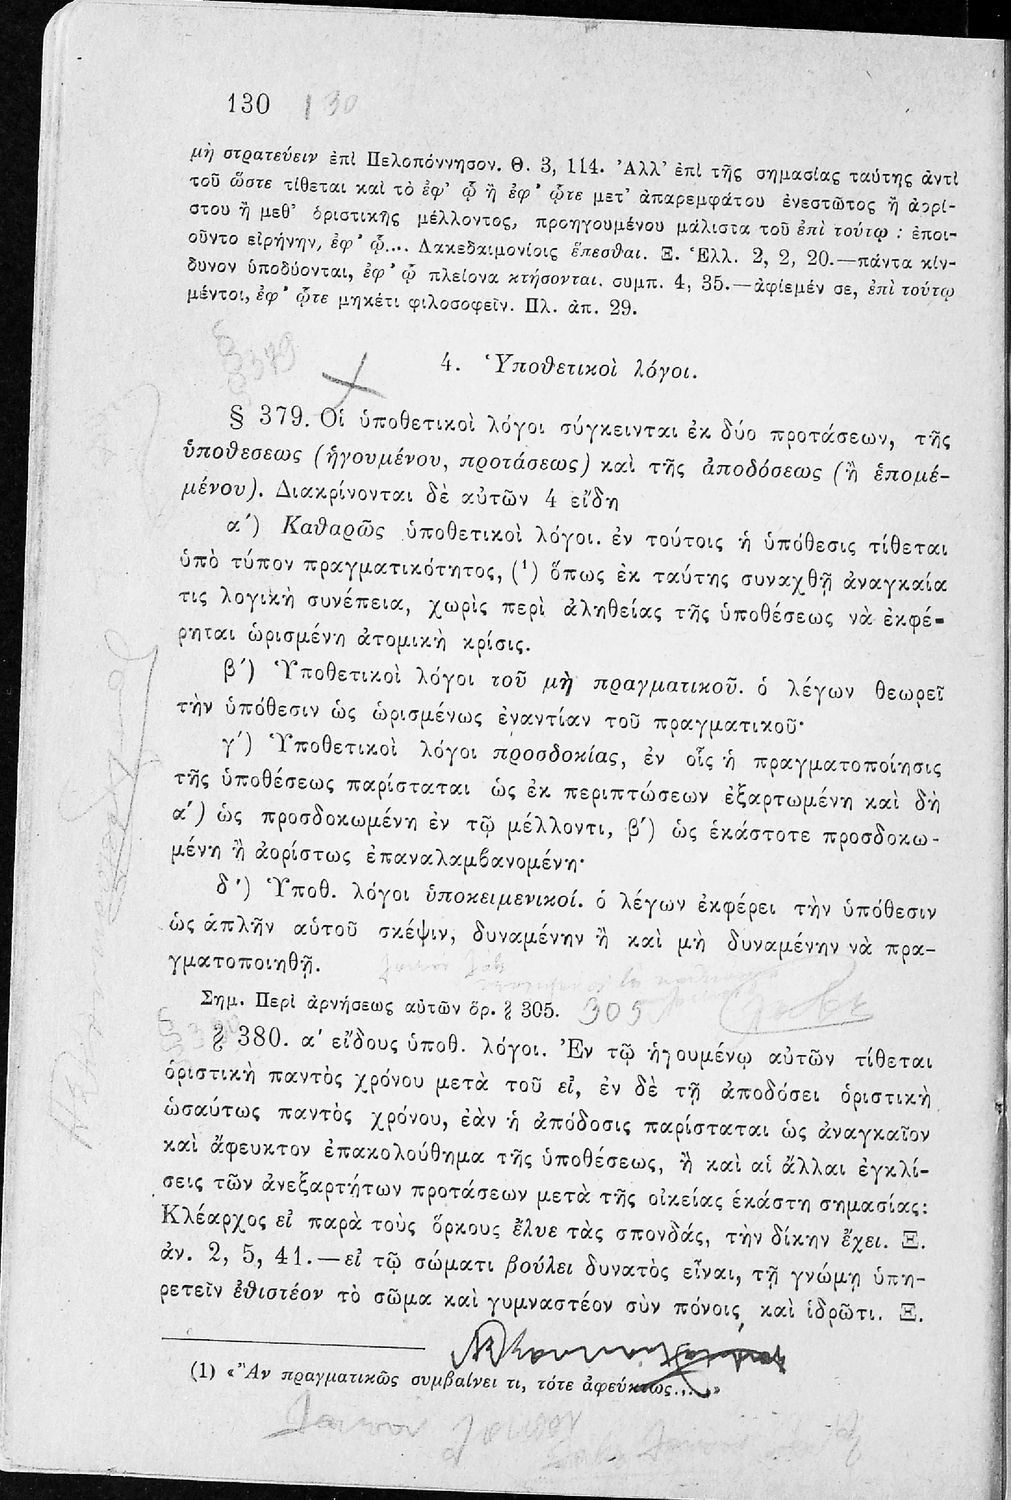 130 130
μὴ στρατεύειν ἐπὶ Πελοπόννησον. Θ. 3, 114. Ἀλλ’ ἐπὶ τῆς σημασίας ταύτης ἀντὶ
τοῦ ὥστε τίθεται καὶ τὸ ἐφ’ ᾧ ἢ ἐφ’ ᾧτε μετ’ ἀπαρεμφάτου ἐνεστῶτος ἢ ἀορί-
στου ἢ μεθ’ ὁριστικῆς μέλλοντος, προηγουμένου μάλιστα τοῦ ἐπὶ τούτῳ : ἐποι-
οῦντο εἰρήνην, ἐφ’ ᾧ.... Λακεδαιμονίοις ἕπεσθαι. Ξ. Ἑλλ. 2, 2, 20.—πάντα κίν-
δυνον ὑποδύονται, ἐφ’ ᾧ πλείονα κτήσονται. συμπ. 4, 35.—ἀφίεμέν σε, ἐπὶ τούτῳ
μέντοι, ἐφ’ ᾧτε μηκέτι φιλοσοφεῖν. Πλ. ἀπ. 29.
§ 379
4. Ὑποθετικοὶ λόγοι.
§ 379. Οἱ ὑποθετικοὶ λόγοι σύγκεινται ἐκ δύο προτάσεων, τῆς
ὑποθεσεως (ἡγουμένου, προτάσεως) καὶ τῆς ἀποδόσεως (ἢ ἑπομέ-
μένου). Διακρίνονται δὲ αὐτῶν 4 εἴδη
α΄) Καθαρῶς ὑποθετικοὶ λόγοι. ἐν τούτοις ἡ ὑπόθεσις τίθεται
ὑπὸ τύπον πραγματικότητος, (¹) ὅπως ἐκ ταύτης συναχθῇ ἀναγκαία
τις λογικὴ συνέπεια, χωρὶς περὶ ἀληθείας τῆς ὑποθέσεως νὰ ἐκφέ-
ρηται ὡρισμένη ἀτομικὴ κρίσις.
β΄) Ὑποθετικοὶ λόγοι τοῦ μὴ πραγματικοῦ. ὁ λέγων θεωρεῖ
τὴν ὑπόθεσιν ὡς ὡρισμένως ἐναντίαν τοῦ πραγματικοῦ·
γ΄) Ὑποθετικοὶ λόγοι προσδοκίας, ἐν οἷς ἡ πραγματοποίησις
τῆς ὑποθέσεως παρίσταται ὡς ἐκ περιπτώσεων ἐξαρτωμένη καὶ δὴ
α΄) ὡς προσδοκωμένη ἐν τῷ μέλλοντι, β΄) ὡς ἑκάστοτε προσδοκω-
μένη ἢ ἀορίστως ἐπαναλαμβανομένη·
δ΄) Ὑποθ. λόγοι ὑποκειμενικοί. ὁ λέγων ἐκφέρει τὴν ὑπόθεσιν
ὡς ἁπλῆν αὑτοῦ σκέψιν, δυναμένην ἢ καὶ μὴ δυναμένην νὰ πρα-
γματοποιηθῇ.
Σημ. Περὶ ἀρνήσεως αὐτῶν ὅρ. § 305. 305
§ 380. α΄ εἴδους ὑποθ. λόγοι. Ἐν τῷ ἡγουμένῳ αὐτῶν τίθεται
ὁριστικὴ παντὸς χρόνου μετὰ τοῦ εἰ, ἐν δὲ τῇ ἀποδόσει ὁριστικὴ
ὡσαύτως παντὸς χρόνου, ἐὰν ἡ ἀπόδοσις παρίσταται ὡς ἀναγκαῖον
καὶ ἄφευκτον ἐπακολούθημα τῆς ὑποθέσεως, ἢ καὶ αἱ ἄλλαι ἐγκλί-
σεις τῶν ἀνεξαρτήτων προτάσεων μετὰ τῆς οἰκείας ἑκάστη σημασίας:
Κλέαρχος εἰ παρὰ τοὺς ὅρκους ἔλυε τὰς σπονδάς, τὴν δίκην ἔχει. Ξ.
ἀν. 2, 5, 41.—εἰ τῷ σώματι βούλει δυνατὸς εἶναι, τῇ γνώμῃ ὑπη-
ρετεῖν ἐθιστέον τὸ σῶμα καὶ γυμναστέον σὺν πόνοις καὶ ἱδρῶτι. Ξ.
(1) «Ἂν πραγματικῶς συμβαίνει τι, τότε ἀφεύκτως.....»